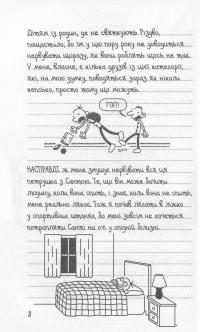 Дітям із родин, де не святкують Різдво,
пощастило, бо їм у цю пору року не доводиться
нервувати щоразу, як вони роблять щось не так.
У мене, власне, є кілька друзів із цієї категорії,
які, на мою думку, поводяться зараз як ніколи
кепсько, просто тому що можуть.
ГОП!
НАСПРАВДІ ж мене змушує нервувати вся ця
петрушка з Сантою. Те, що він може бачити
людину, коли вона спить, і знає, коли вона не спить,
мене реально лякає. Тож я почав лягати в ліжко
у спортивних штанях, бо мені зовсім не хочеться
потрапляти Санті на очі у спідній білизні.
8